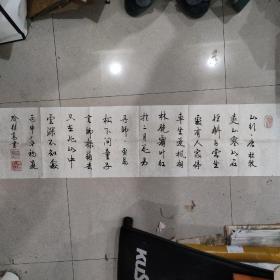 山行 唐 杜牧
遠上寒山石
徑斜白雲生
處有人家停
車坐愛楓
林晚霜葉紅
於二月花
松下問童子
言師採藥去
只在此山中
雲深不知處
KUS